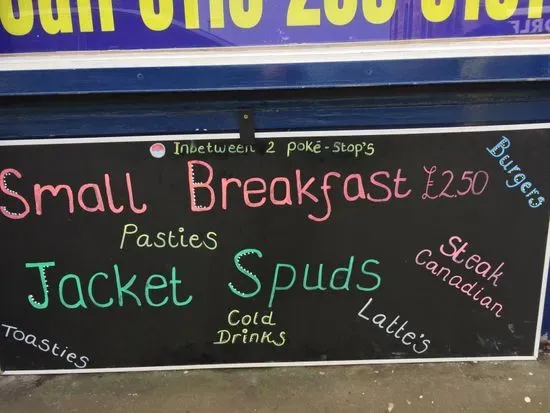 Inbetween 2 poké-stop's
Small Breakfast £2.50
Burgers
Pasties
Steak
Canadian
Jacket Spuds
Cold
Drinks
Latte's
Toasties